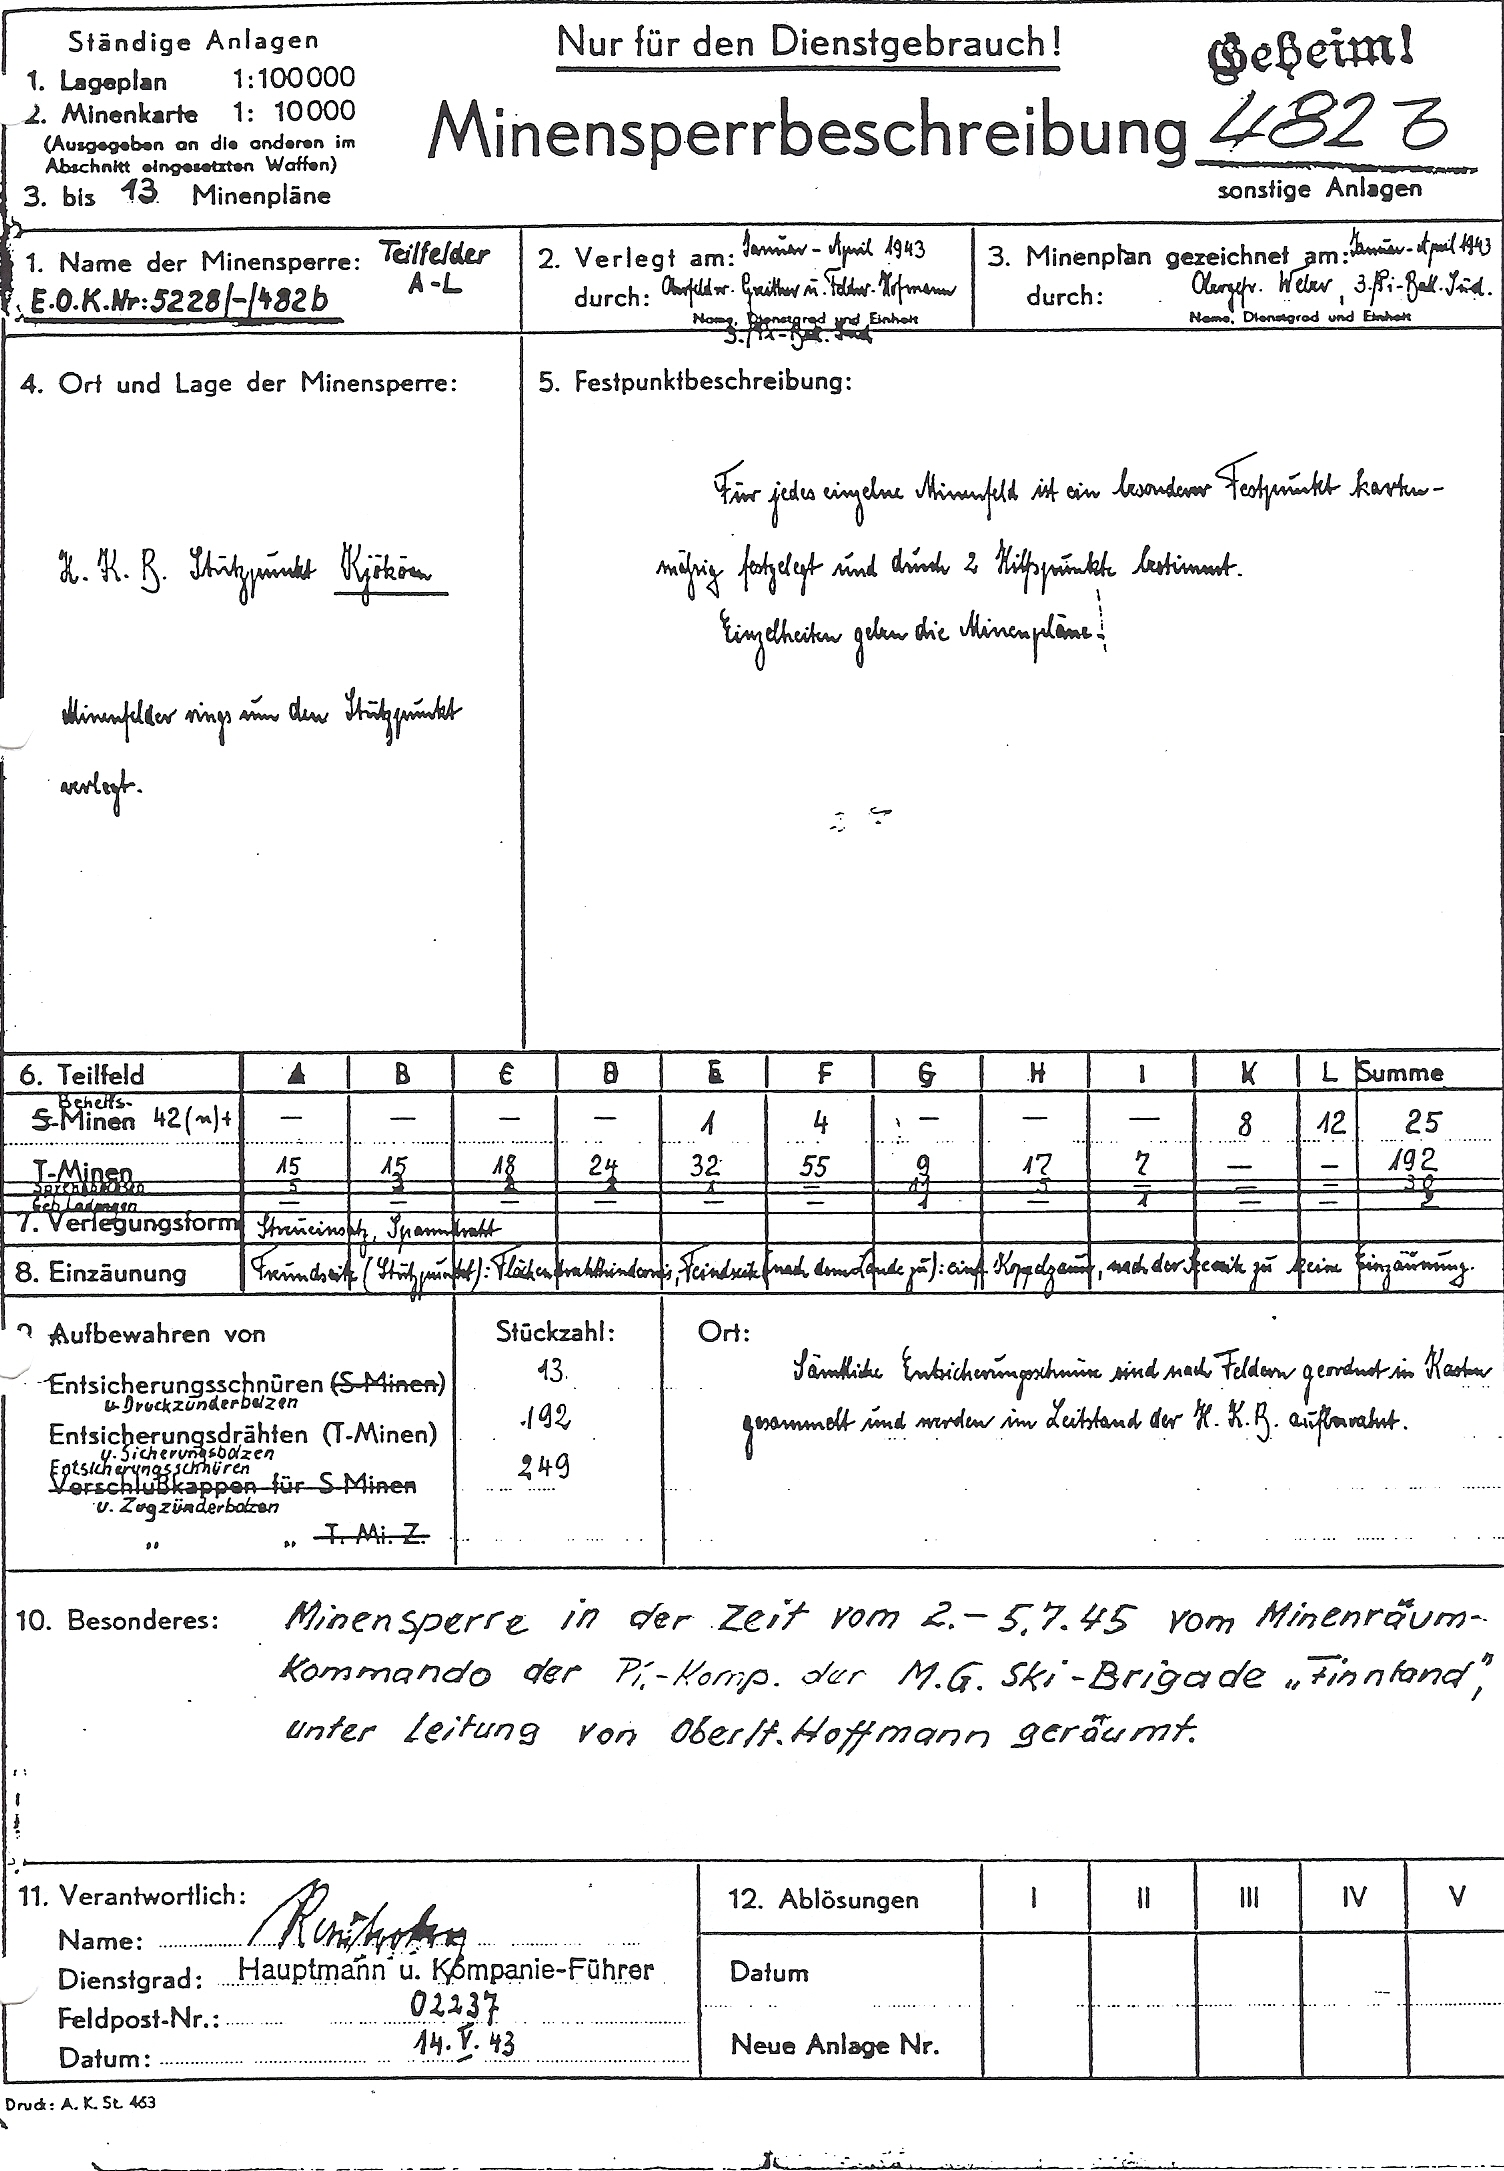 Ständige Anlagen
1. Lageplan 1:100000
2. Minenkarte 1: 10000
(Ausgegeben an die anderen im
Abschnitt eingesetzten Waffen)
3. bis 13 Minenpläne
Nur für den Dienstgebrauch!
Minensperrbeschreibung
Geheim!
482
sonstige Anlagen
1. Name der Minensperre: Teilfelder
A-L
E.O.K.Nr:5228/-/482b
2. Verlegt am: Januar - April 1943
durch: Oberfeldw. u. Feldw. Hofmann
Name, Dienstgrad und Einheit
3./Pi-Batl. Süd
3. Minenplan gezeichnet am: Januar - April 1943
durch: Obergefr. Weber, 3./Pi-Batl. Süd.
Name, Dienstgrad und Einheit
4. Ort und Lage der Minensperre:
H. K. B. Stützpunkt Kjökön
Minenfelder rings um den Stützpunkt
verlegt.
5. Festpunktbeschreibung:
Für jedes einzelne Minenfeld ist ein besonderer Festpunkt karten-
mäßig festgelegt und durch 2 Hilfspunkte bestimmt.
Einzelheiten geben die Minenpläne.
6. Teilfeld A B C D E F G H I K L Summe
Behelfs-
S-Minen 42(n)+ — — — — 1 4 — — — 8 12 25
T-Minen 15 15 18 24 32 55 9 17 7 — — 192
Geb. Ladungen — — — — — — 1 — 1 — — 2
7. Verlegungsform Streueinsatz, Spanndraht
8. Einzäunung Freundseite (Stützpunkt): Flächendrahthindernis, Feindseite (nach dem Lande zu): einf. Koppelzaun, nach der Seeseite zu keine Einzäunung.
9. Aufbewahren von Stückzahl: Ort:
Entsicherungsschnüren (S-Minen) 13
u. Druckzünderbolzen
Entsicherungsdrähten (T-Minen) 192
u. Sicherungsbolzen
Entsicherungsschnüren 249
Verschlußkappen für S-Minen
u. Zugzünderbolzen
„ „ T. Mi. Z.
Sämtliche Entsicherungsschnüre sind nach Feldern geordnet in Kasten
gesammelt und werden im Leitstand der H. K. B. aufbewahrt.
10. Besonderes: Minensperre in der Zeit vom 2.-5.7.45 vom Minenräum-
Kommando der Pi.-Komp. der M.G. Ski-Brigade „Finnland",
unter Leitung von Oberlt. Hoffmann geräumt.
11. Verantwortlich:
Name:
Dienstgrad: Hauptmann u. Kompanie-Führer
Feldpost-Nr.: 02237
Datum: 14. V. 43
12. Ablösungen I II III IV V
Datum
Neue Anlage Nr.
Druck: A. K. St. 463